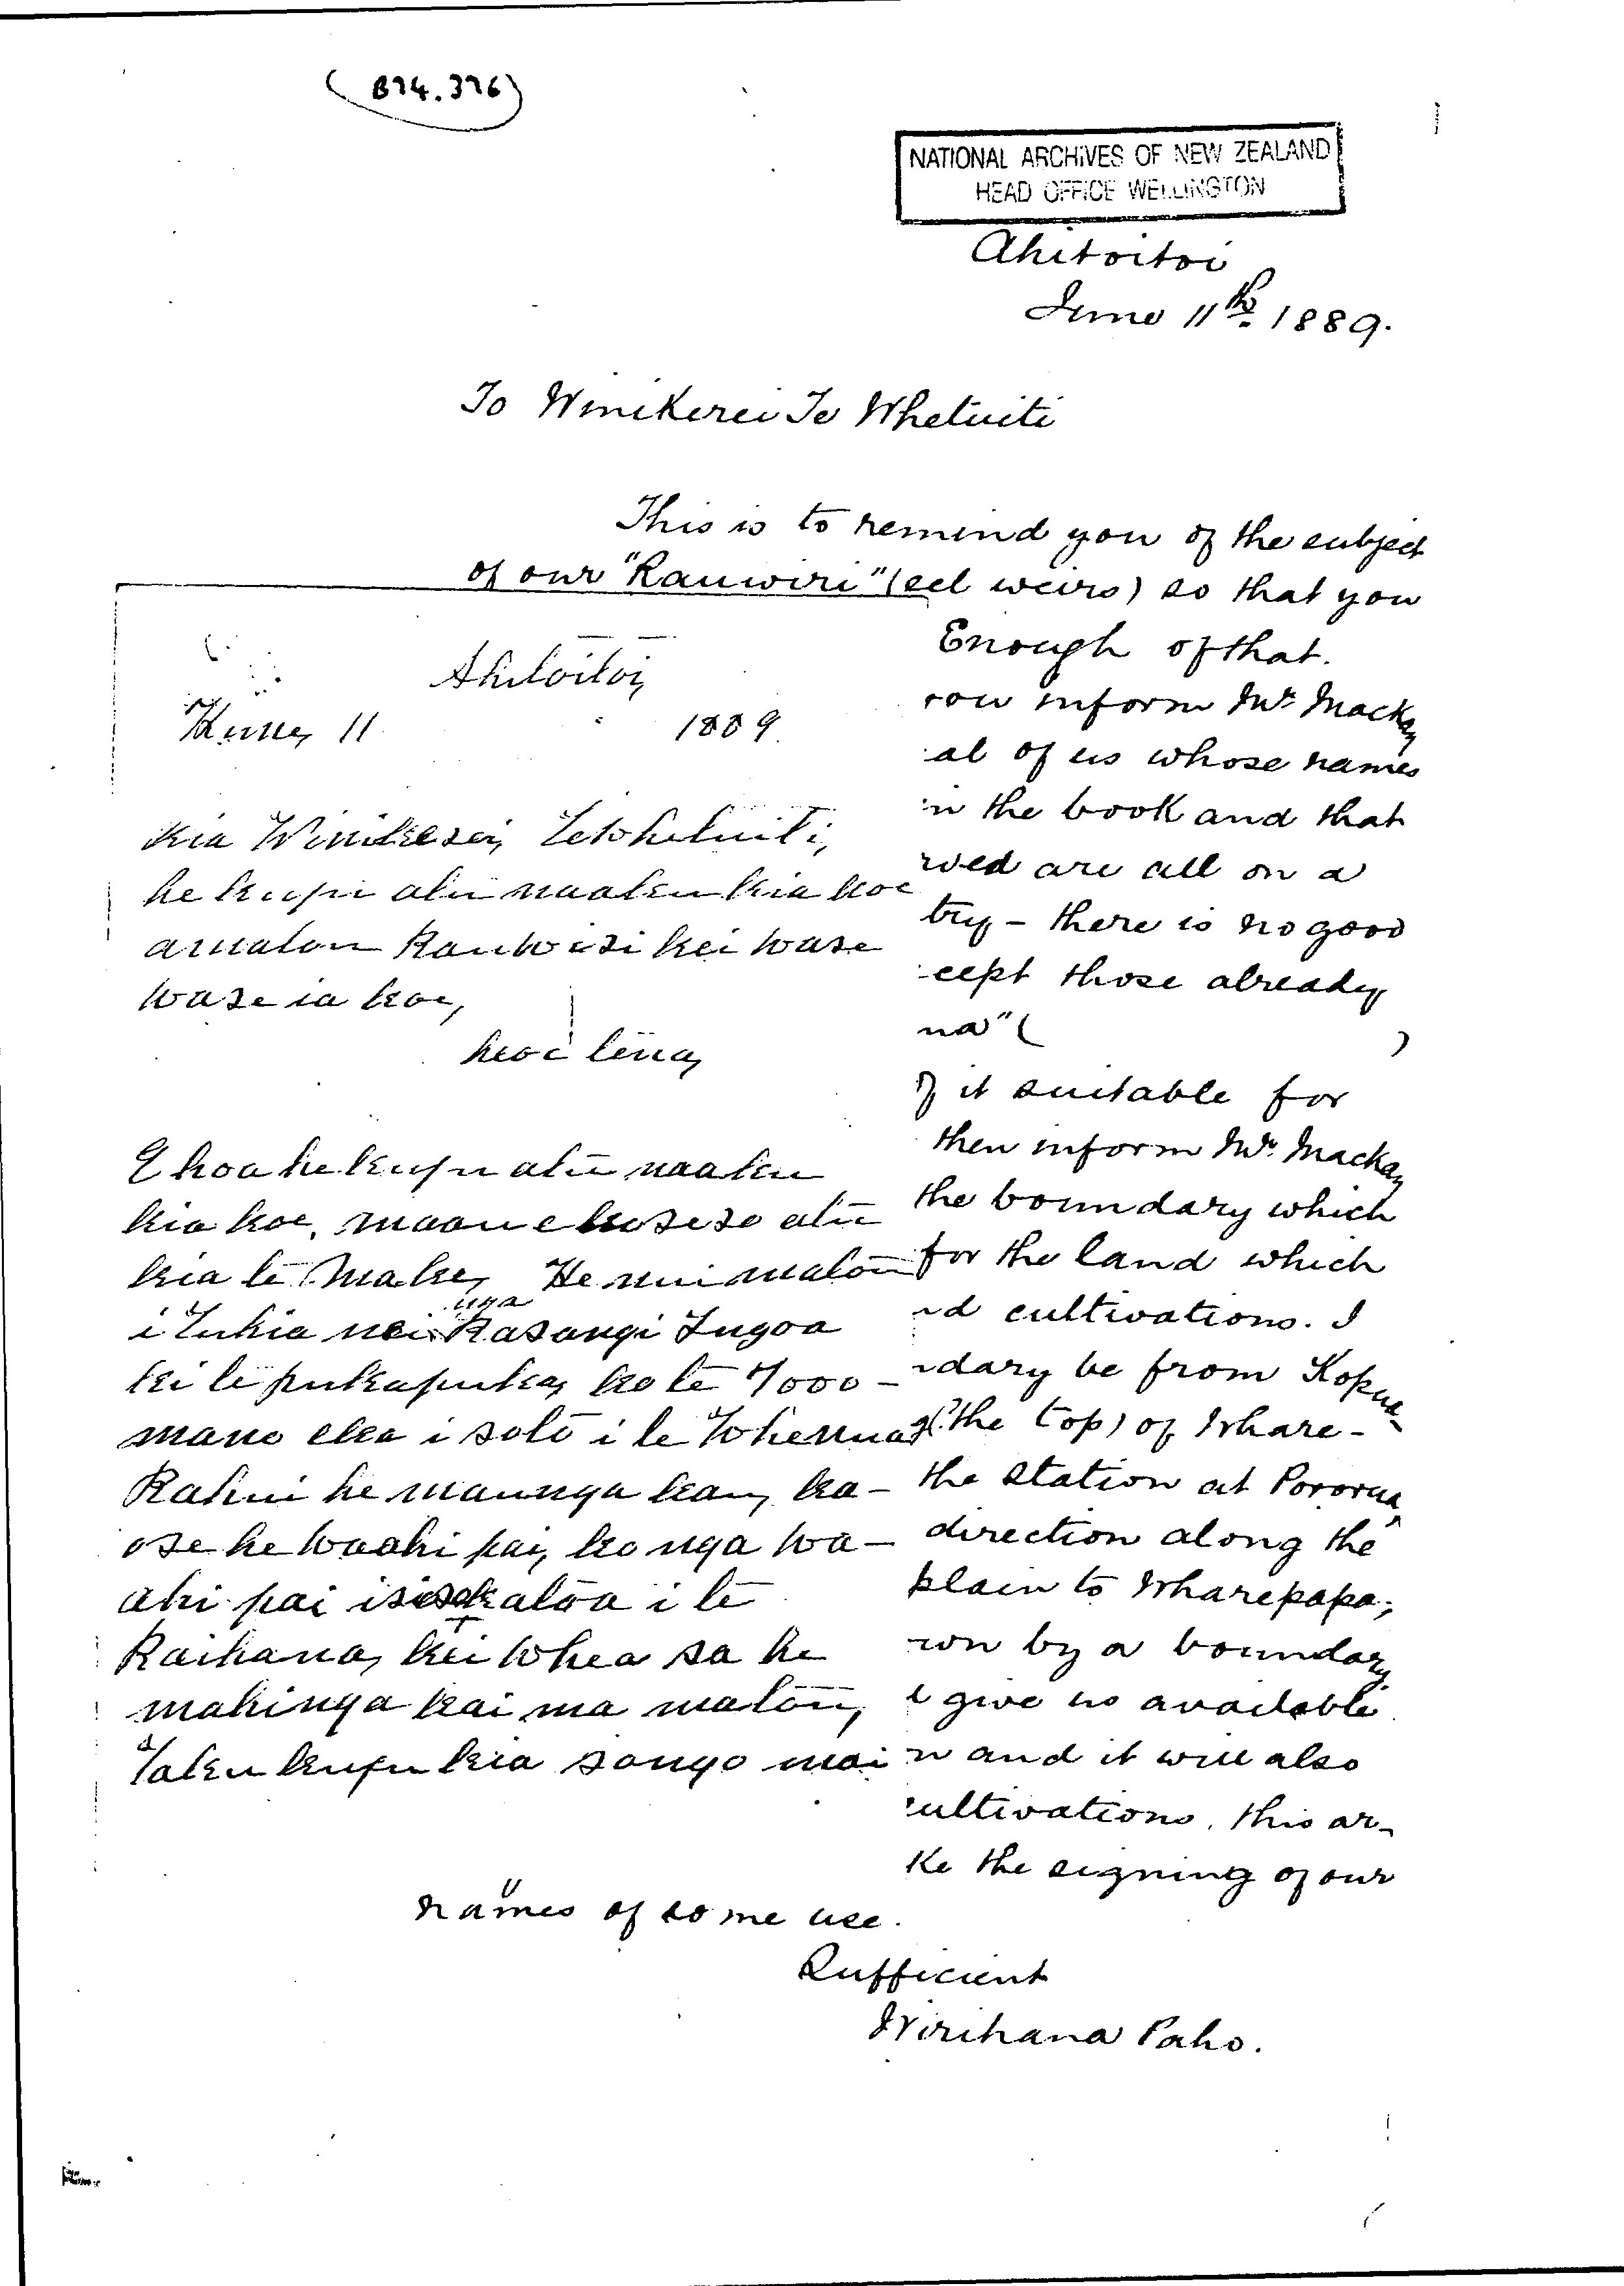 (B74.376)
NATIONAL ARCHIVES OF NEW ZEALAND
HEAD OFFICE WELLINGTON
Ahitoitoi
June 11th 1889.
To Winikerei Te Whetuiti
This is to remind you of the subject
of our "Rauwiri" (eel weirs) so that you
Enough of that.
you inform Mr Mackay
al of us whose names
in the book and that
rved are all on a
try - there is no good
cept those already
na" ( )
if it suitable for
then inform Mr. Mackay
the boundary which
for the land which
nd cultivations. I
ndary be from Kopua-
(the top) of Whare-
the station at Pororua,
direction along the
plain to Wharepapa;
wn by a boundary
l give us available
n and it will also
cultivations. this ar-
ke the signing of our
names of some use.
Sufficient
Wirihana Paho.
Ahitoitoi,
Hune, 11 1889.
Kia Winikerei, Te Whetuiti,
he kupu atu naaku kia koe
a matou Rauwiri kei ware
ware ia koe,
heoi tena,
E hoa he kupu atu naaku
kia koe, maau e korero atu
kia te Make, He nui matou
i tuhia nei nga Rarangi Ingoa
ki te pukapuka, ko te 7000
mano eka i roto i te Whenua
Rahui he maunga kau, ka-
ore he waahi pai, ko nga wa-
ahi pai i riro katoa i te
Raihana, kei whea ra he
mahinga kai ma matou,
Taku kupu kia rongo mai